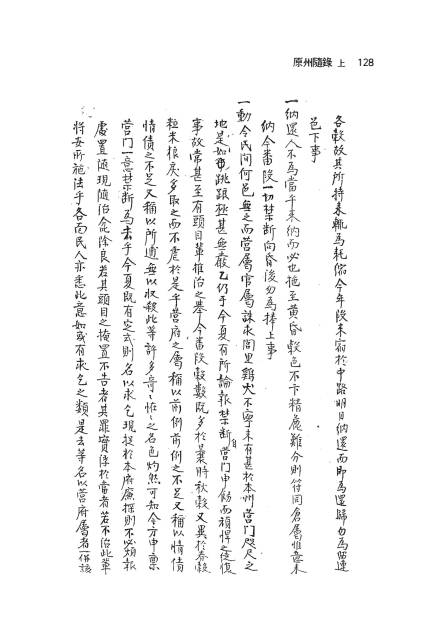 原州隨錄 上 128
各穀故其所持來輒爲耗縮今年段未宿於中路明日納還而即爲還歸勿爲留連
邑下事
一納還人不爲當午來納而必也拖至黃昏穀色不卞精麁難分則符同倉屬惟意來
納今番段一切禁斷向昏後勿爲捧上事
一動令民間何邑無之而營屬官屬誅求閭里鷄犬不寧未有甚於本州營門咫尺之
地是如跳踉極甚無嚴乙仍于今夏有所論報禁斷自營門申飭而頑悍之徒復
事故常甚至有頭目輩推治之擧今番段穀數旣多於曩時秋穀又異於春穀
粒米狼戾多取之而不虐於是乎營府之屬稱以前例前例之不足又稱以情債
情債之不足又稱以所逋無以收殺此等許多之名色灼然可知今方申稟
營門一意禁斷爲去乎今夏旣有定式則名以求乞現捉於本府廉探則不必煩報
處置隨現隨治念除良若其頭目之掩置不告者其罪實浮於常者若不治此輩
將安所施法乎各面民人亦悉此意如或有求乞之類是去等名以營府屬者一倂該